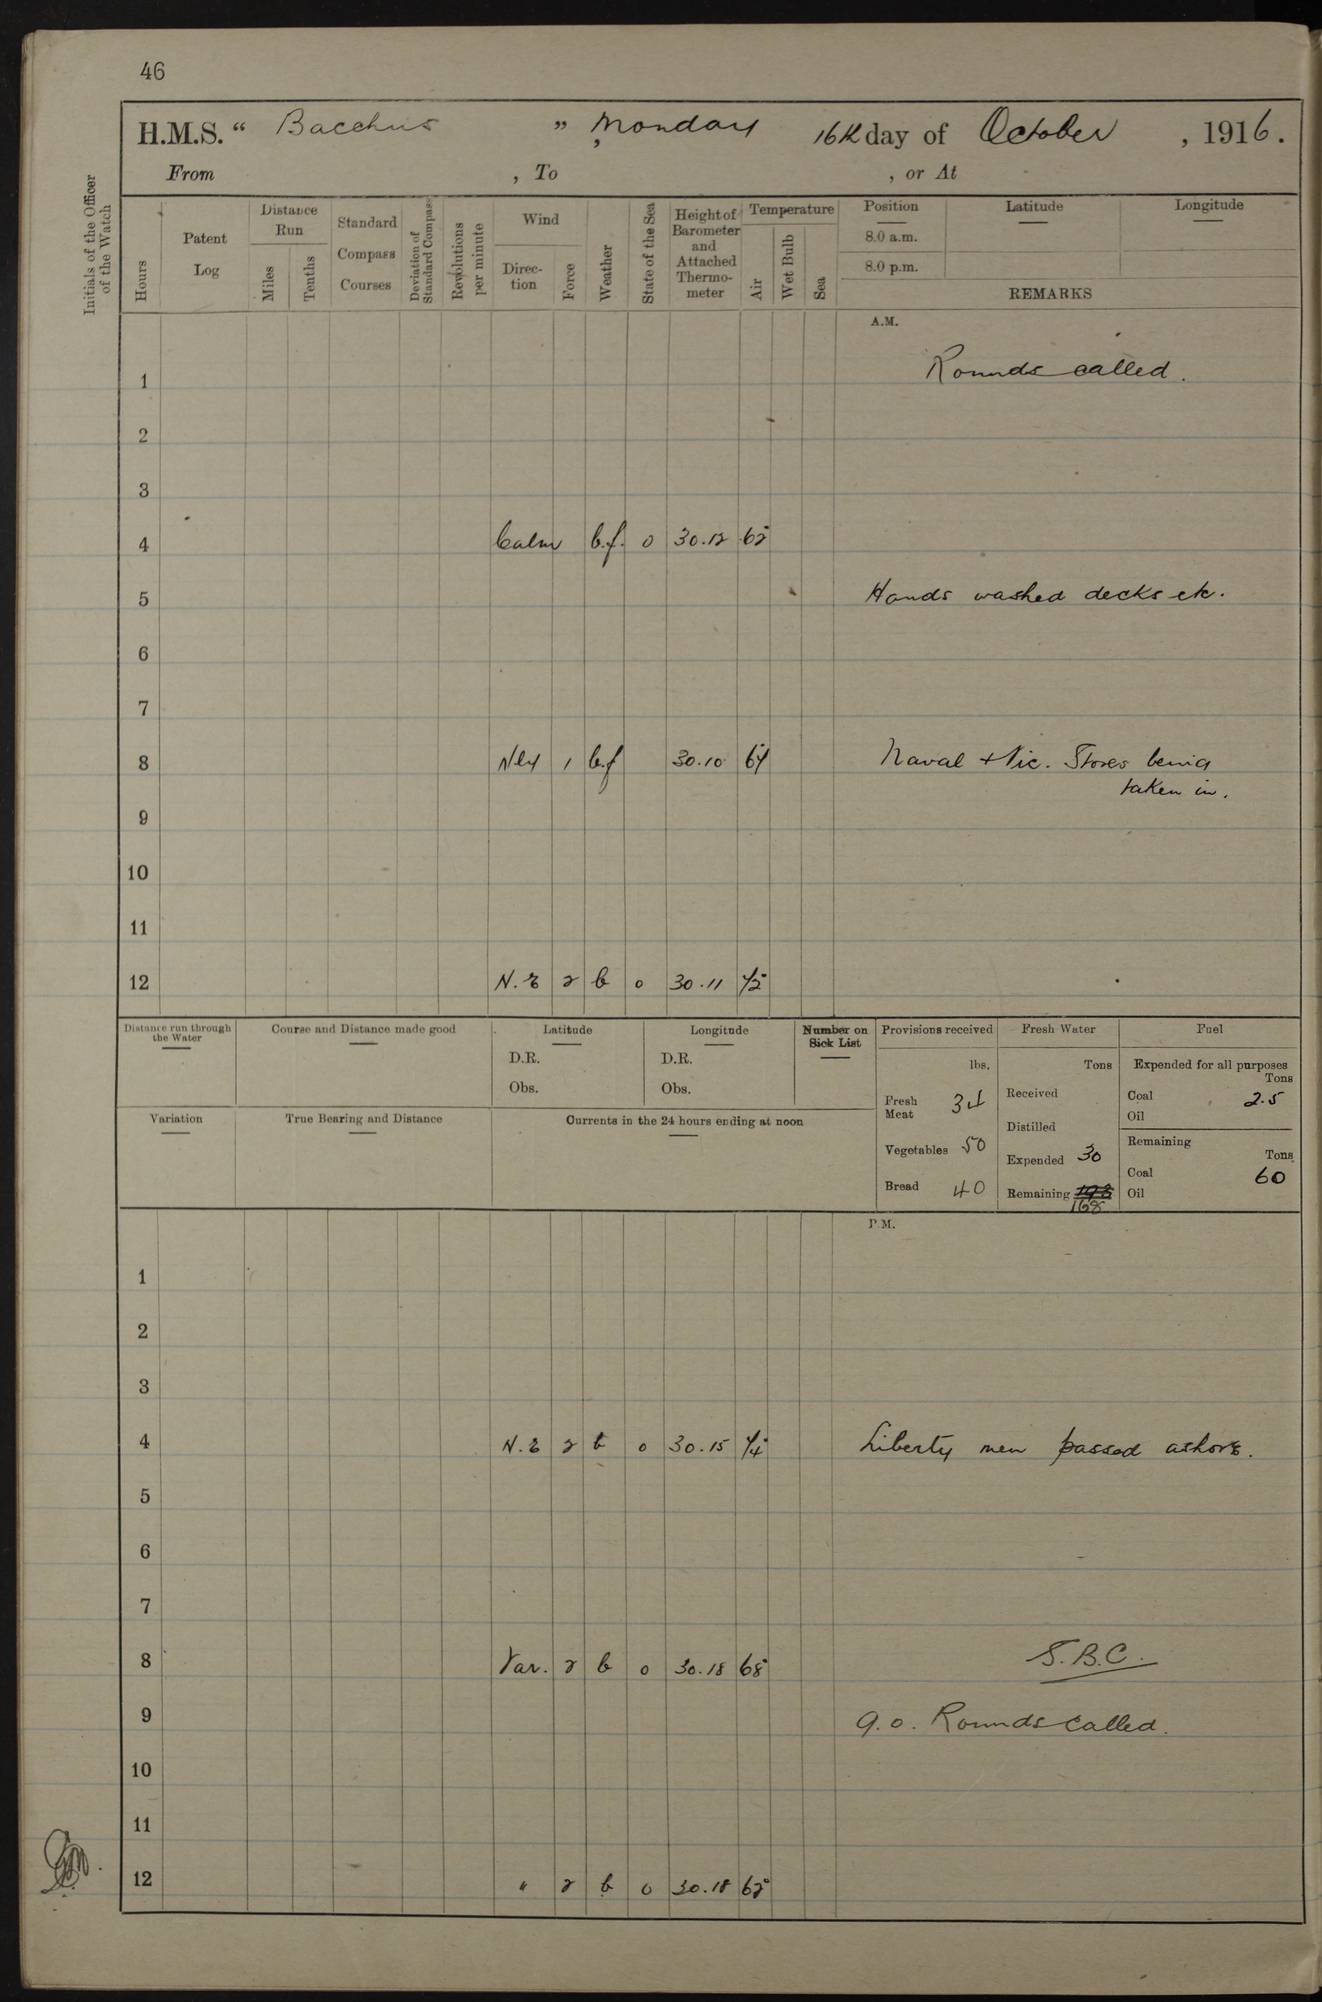 46
H.M.S. “ Bacchus ”, Monday 16th day of October, 1916.
From , To , or At
Initials of the Officer of the Watch
Hours
Patent Log
Distance Run
Miles
Tenths
Standard Compass Courses
Deviation of Standard Compass
Revolutions per minute
Wind
Direc-tion
Force
Weather
State of the Sea
Height of Barometer and Attached Thermo-meter
Temperature
Air
Wet Bulb
Sea
Position Latitude Longitude
8.0 a.m.
8.0 p.m.
REMARKS
A.M.
1 Rounds called.
2
3
4 Calm b.f. 0 30.12 62°
5 Hands washed decks etc.
6
7
8 Nly 1 b.f 30.10 64° Naval & Vic. Stores being
taken in.
9
10
11
12 N.E 2 b 0 30.11 72°
Distance run through the Water
Course and Distance made good
Latitude
D.R.
Obs.
Longitude
D.R.
Obs.
Number on Sick List
Variation
True Bearing and Distance
Currents in the 24 hours ending at noon
Provisions received
lbs.
Fresh Meat 34
Vegetables 50
Bread 40
Fresh Water
Tons
Received
Distilled
Expended 30
Remaining 198
168
Fuel
Expended for all purposes
Tons
Coal 2.5
Oil
Remaining
Tons
Coal 60
Oil
P.M.
1
2
3
4 N.E 2 b 0 30.15 74° Liberty men passed ashore.
5
6
7
8 Var. 2 b 0 30.18 68° S.B.C.
9 9.0. Rounds called.
10
11
12 " 2 b 0 30.18 62°